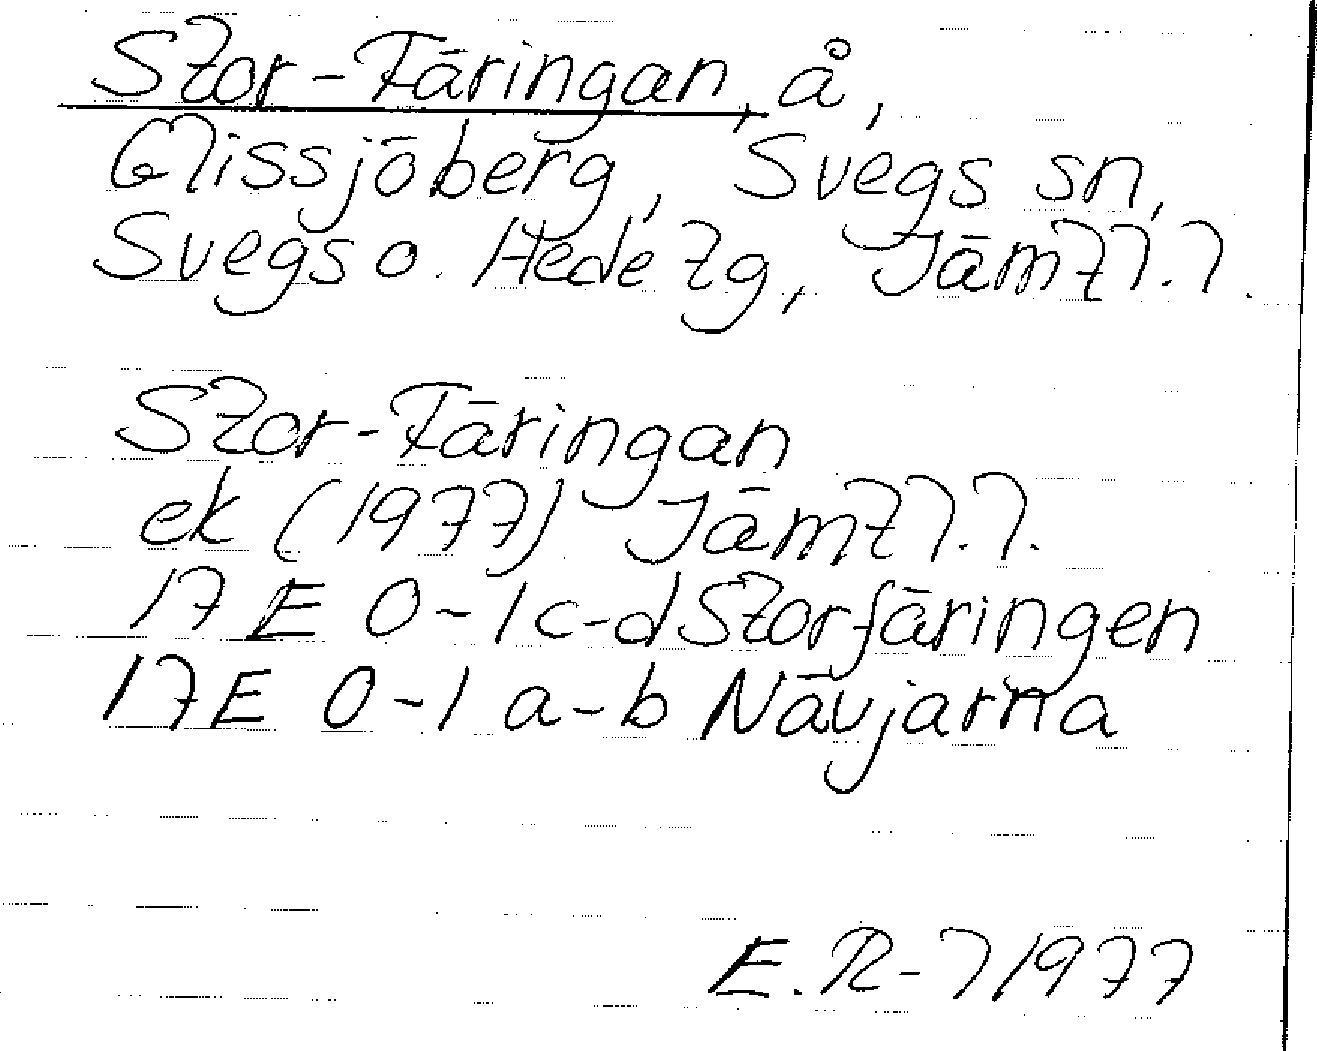 Stor-Färingan, å,
Glissjöberg, Svegs sn,
Svegs o. Hede tg, Jämtl.l.
Stor-Färingan
ek (1977) Jämtl.l.
17 E 0-1 c-d Storfäringen
17 E 0-1 a-b Nävjarna
E. R-l 1977